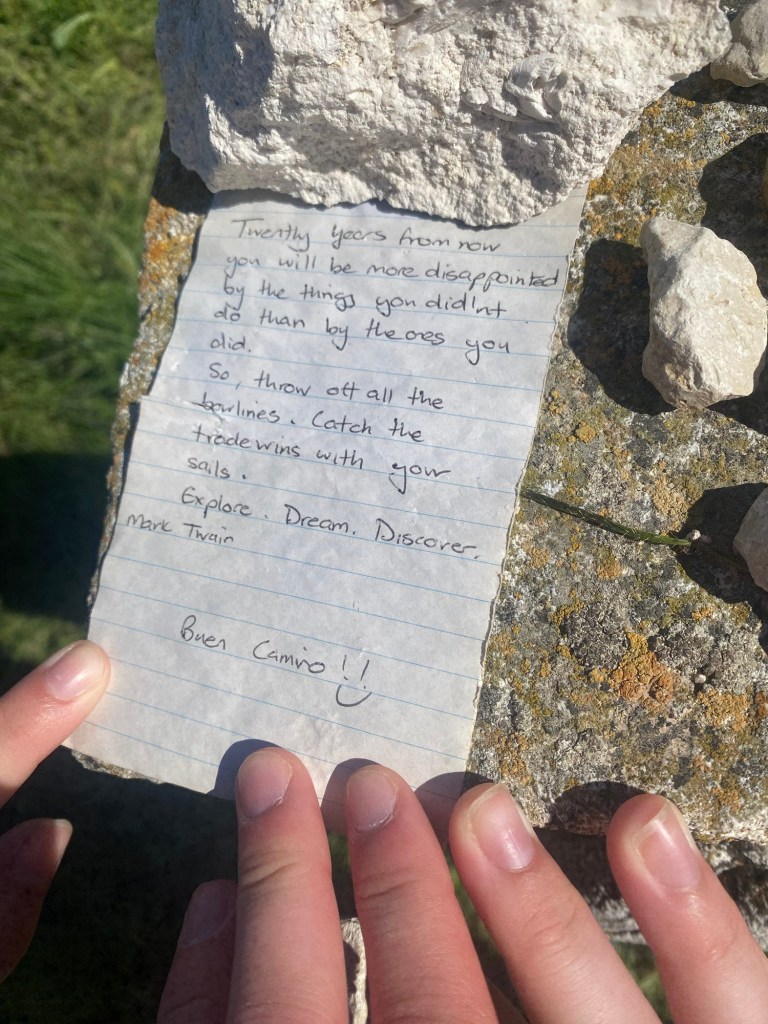 Twently years from now
you will be more disappointed
by the things you did'nt
do than by the ones you
did.
So, throw off all the
bowlines. Catch the
tradewins with your
sails.
Explore. Dream. Discover.
Mark Twain
Buen Camino!!